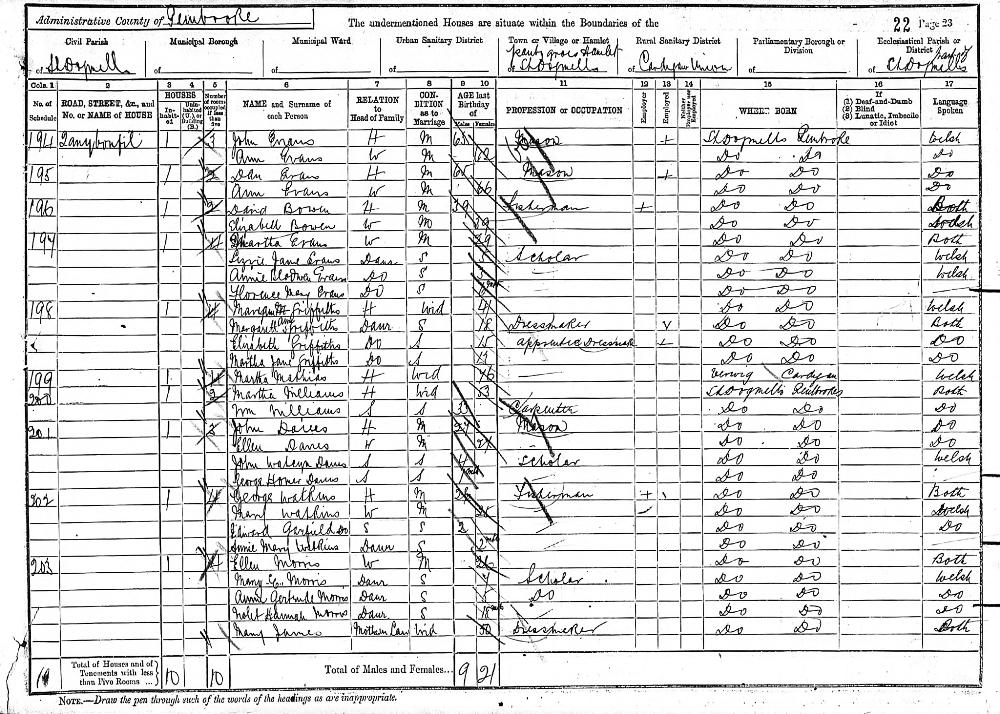 Administrative County of Pembroke
The undermentioned Houses are situate within the Boundaries of the
22 Page 23
Civil Parish of St Dogmells
Municipal Borough of
Municipal Ward of
Urban Sanitary District of
Town or Village or Hamlet of St Dogmells
Rural Sanitary District of Cardigan Union
Parliamentary Borough or Division of
Ecclesiastical Parish or District of part of St Dogmells
Coln. 1 2 3 4 5 6 7 8 9 10 11 12 13 14 15 16 17
No. of Schedule
ROAD, STREET, &c., and No. or NAME of HOUSE
HOUSES
In-habited
Uninhabited (U.), or Building (B.)
Number of rooms occupied if less than five
NAME and Surname of each Person
RELATION to Head of Family
CONDITION as to Marriage
AGE last Birthday of
Males Females
PROFESSION or OCCUPATION
Employer
Employed
Neither Employer nor Employed
WHERE BORN
If (1) Deaf-and-Dumb (2) Blind (3) Lunatic, Imbecile or Idiot
Language Spoken
194 1 3 John Evans H M 65 Mason + St Dogmells Pembroke Welsh
Ann Evans W M 62 Do Do Do
195 1 Dan Evans H M Mason + Do Do Do
Ann Evans W M 66 Do Do Do
196 1 2 David Bowen H M 39 Fisherman + Do Do Both
Elizabeth Bowen W M 39 Do Do Welsh
197 1 4 Martha Evans W M 29 Do Do Both
Lizzie Jane Evans Daur S Scholar Do Do Welsh
Annie Evans Do S Do Do Welsh
Florence Mary Evans Do S Do Do —
198 1 4 Margaret Griffiths H Wid 41 Do Do Welsh
Margarett Ann Griffiths Daur S 18 Dressmaker Do Do Both
Elizabeth Griffiths Do S 15 apprentice Dressmak + Do Do Do
Martha Jane Griffiths Do S 11 Do Do Do
199 1 Martha Mathias H Wid 46 Verwig Cardigan Welsh
200 1 2 Martha Williams H Wid 53 St Dogmells Pembroke Both
Wm Williams S S 33 Carpenter Do Do Do
201 1 3 John Davies H M 27 Mason Do Do Do
Ellen Davies W M 27 Do Do Do
John Davies S S 4 Scholar Do Do Welsh
George Homer Davies S S Do Do —
202 1 4 George Watkins H M 26 Fisherman + Do Do Both
Mary Watkins W M 25 Do Do Welsh
Edward Garfield Do S S 2 Do Do Do
Annie Mary Watkins Daur S Do Do —
203 1 4 Ellen Morris W M 26 Do Do Both
Mary E. Morris Daur S 7 Scholar Do Do Welsh
Annie Gertrude Morris Daur S 5 Do Do Do Do
Violet Hannah Morris Daur S Do Do Do
Mary James Mother in Law Wid 50 Dressmaker Do Do Both
10 Total of Houses and of Tenements with less than Five Rooms ... 10 10
Total of Males and Females... 9 21
NOTE.—Draw the pen through such of the words of the headings as are inappropriate.